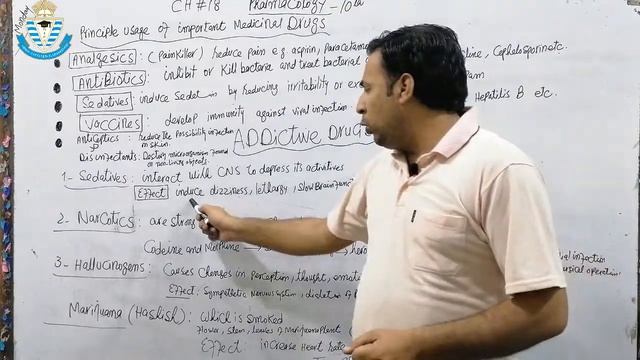 CH #18 Pharmacology - 10th
Principle usage of important Medicinal Drugs
Analgesics : (Painkiller) reduce pain e.g aspirin, Paracetam
Antibiotics : inhibit or Kill bacteria and treat bacterial line, Cephelosporin etc.
Sedatives : induce Sedat by reducing irritability or ex pam
Vaccines : develop immunity against viral infection. Hepatitis B etc.
Anticeptics : reduce the possibility infection
on skin.
ADDICTIVE DRUGS
Disinfectants : Destroy microorganism found
on non-living objects.
1- Sedatives : interact with CNS to depress its activities
Effect induce dizziness, lethargy, slow Brain func
2- Narcotics : are stron
Codeine and Morphine → hero
3- Hallucinogens : Causes Chenges in perception, thought, emot
Effect : Sympathetic Nervous System, dialet
Marijuana (Hashish) : which is smoked
flower, stem, leaves of Marijuana plant
Effect : increase Heart rate